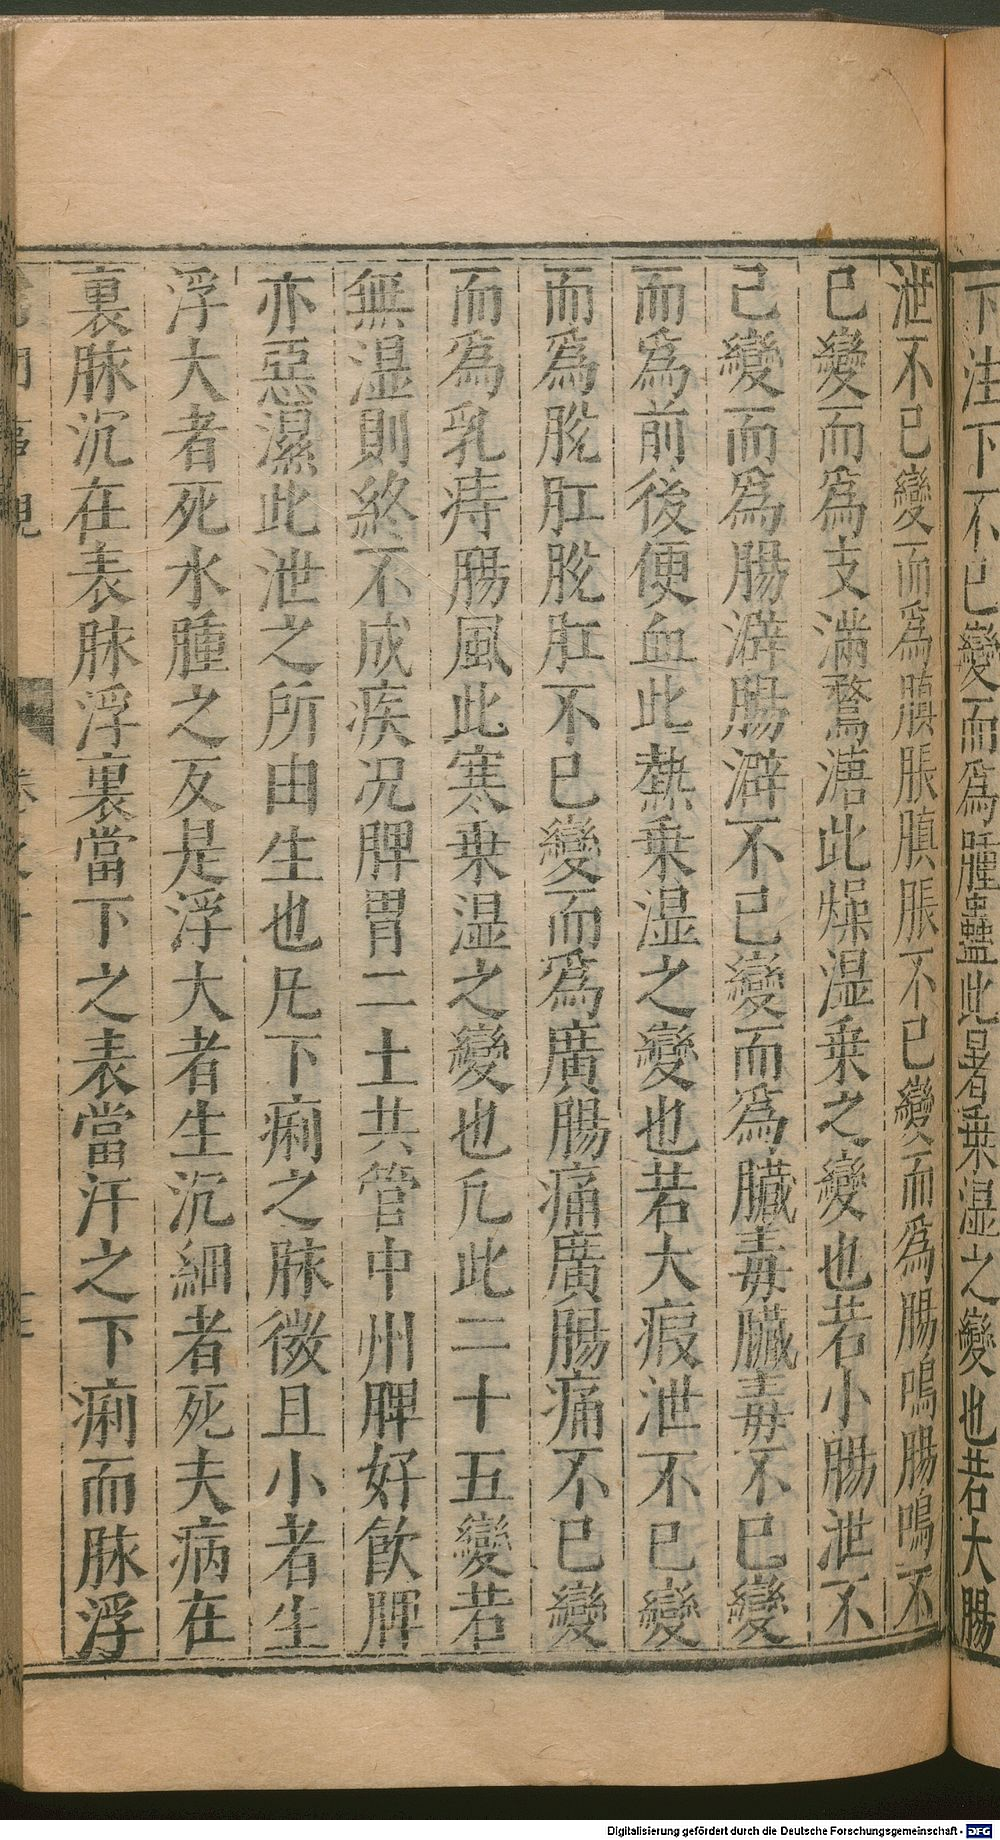 下注下下不已變而爲腫蠱此暑乗湿之變也若大腸
泄不已變而爲䐜脹䐜脹不已變而爲腸鳴腸鳴不
已變而爲支滿鶩溏此燥湿乗之變也若小腸泄不
已變而爲腸澼腸澼不已變而爲臟毒臟毒不已變
而爲前後便血此熱乗湿之變也若大瘕泄不已變
而爲脫肛脫肛不已變而爲廣腸痛廣腸痛不已變
而爲乳痔腸風此寒乗湿之變也凢此二十五變若
無湿則終不成疾况脾胃二土共管中州脾好飮脾
亦惡濕此泄之所由生也凡下痢之脉微且小者生
浮大者死水腫之反是浮大者生沉細者死夫病在
裏脉沉在表脉浮裏當下之表當汗之下痢而脉浮